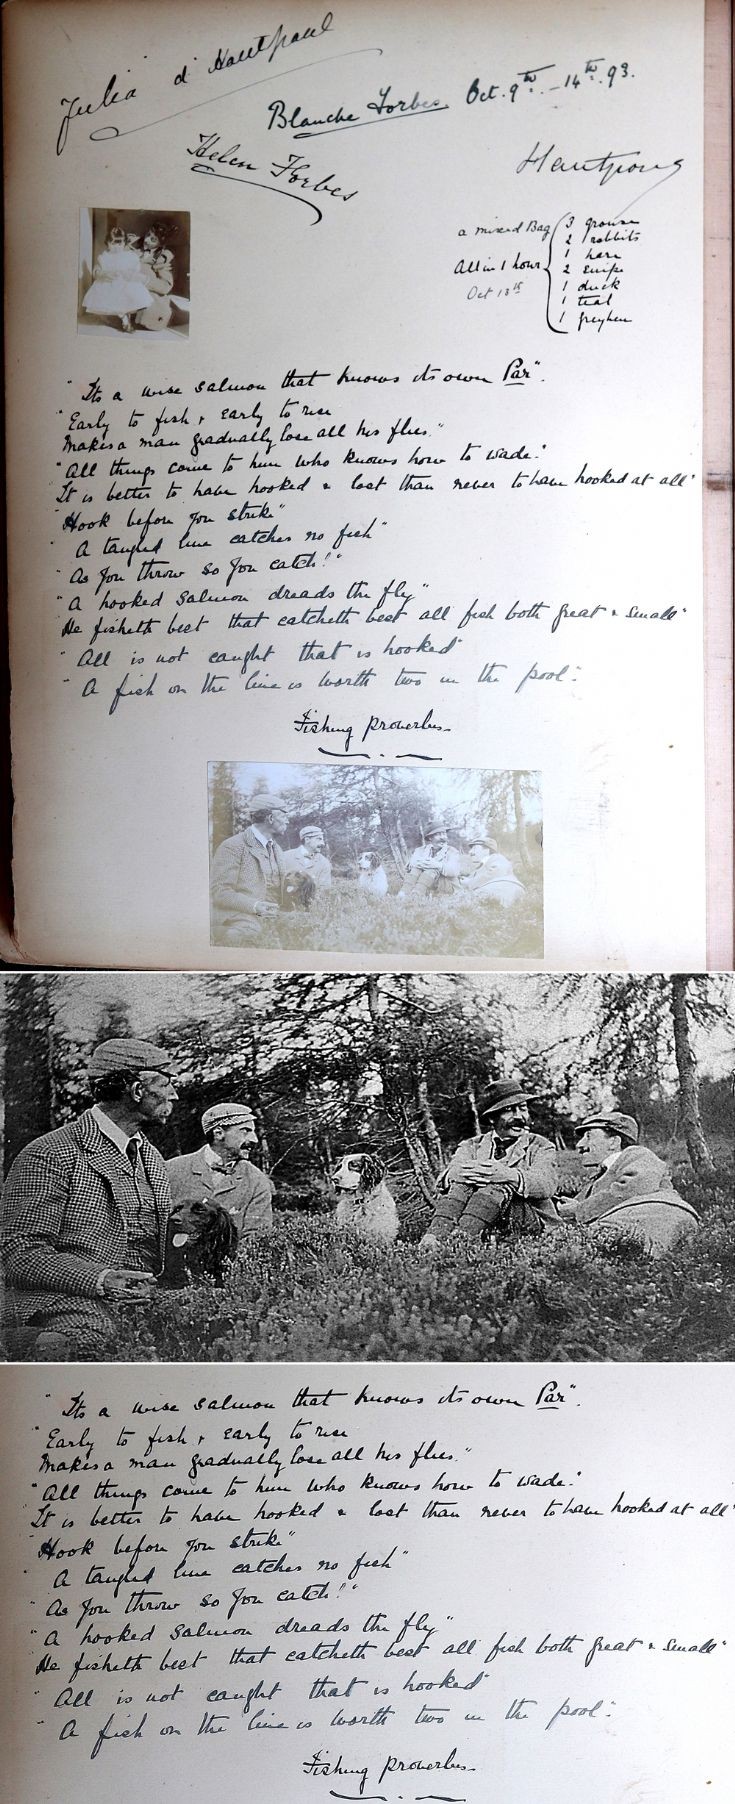 Julia d' Hautpoul
Blanche Forbes. Oct. 9th. - 14th. 93.
Helen Forbes
Hautpoul
a mixed Bag
All in 1 hour
Oct 13th
3 grouse
2 rabbits
1 hare
2 snipe
1 duck
1 teal
1 greyhen
"Its a wise salmon that knows its own Par".
"Early to fish & early to rise
Makes a man gradually lose all his flies."
"All things come to him who knows how to wade."
It is better to have hooked & lost than never to have hooked at all"
"Hook before you strike"
"A tangled line catches no fish"
"As you throw so you catch!"
"A hooked salmon dreads the fly"
"He fisheth best that catcheth best all fish both great & small"
"All is not caught that is hooked"
"A fish on the line is worth two in the pool".
Fishing Proverbs
"Its a wise salmon that knows its own Par".
"Early to fish & early to rise
Makes a man gradually lose all his flies."
"All things come to him who knows how to wade."
It is better to have hooked & lost than never to have hooked at all"
"Hook before you strike"
"A tangled line catches no fish"
"As you throw so you catch!"
"A hooked salmon dreads the fly"
"He fisheth best that catcheth best all fish both great & small"
"All is not caught that is hooked"
"A fish on the line is worth two in the pool".
Fishing Proverbs